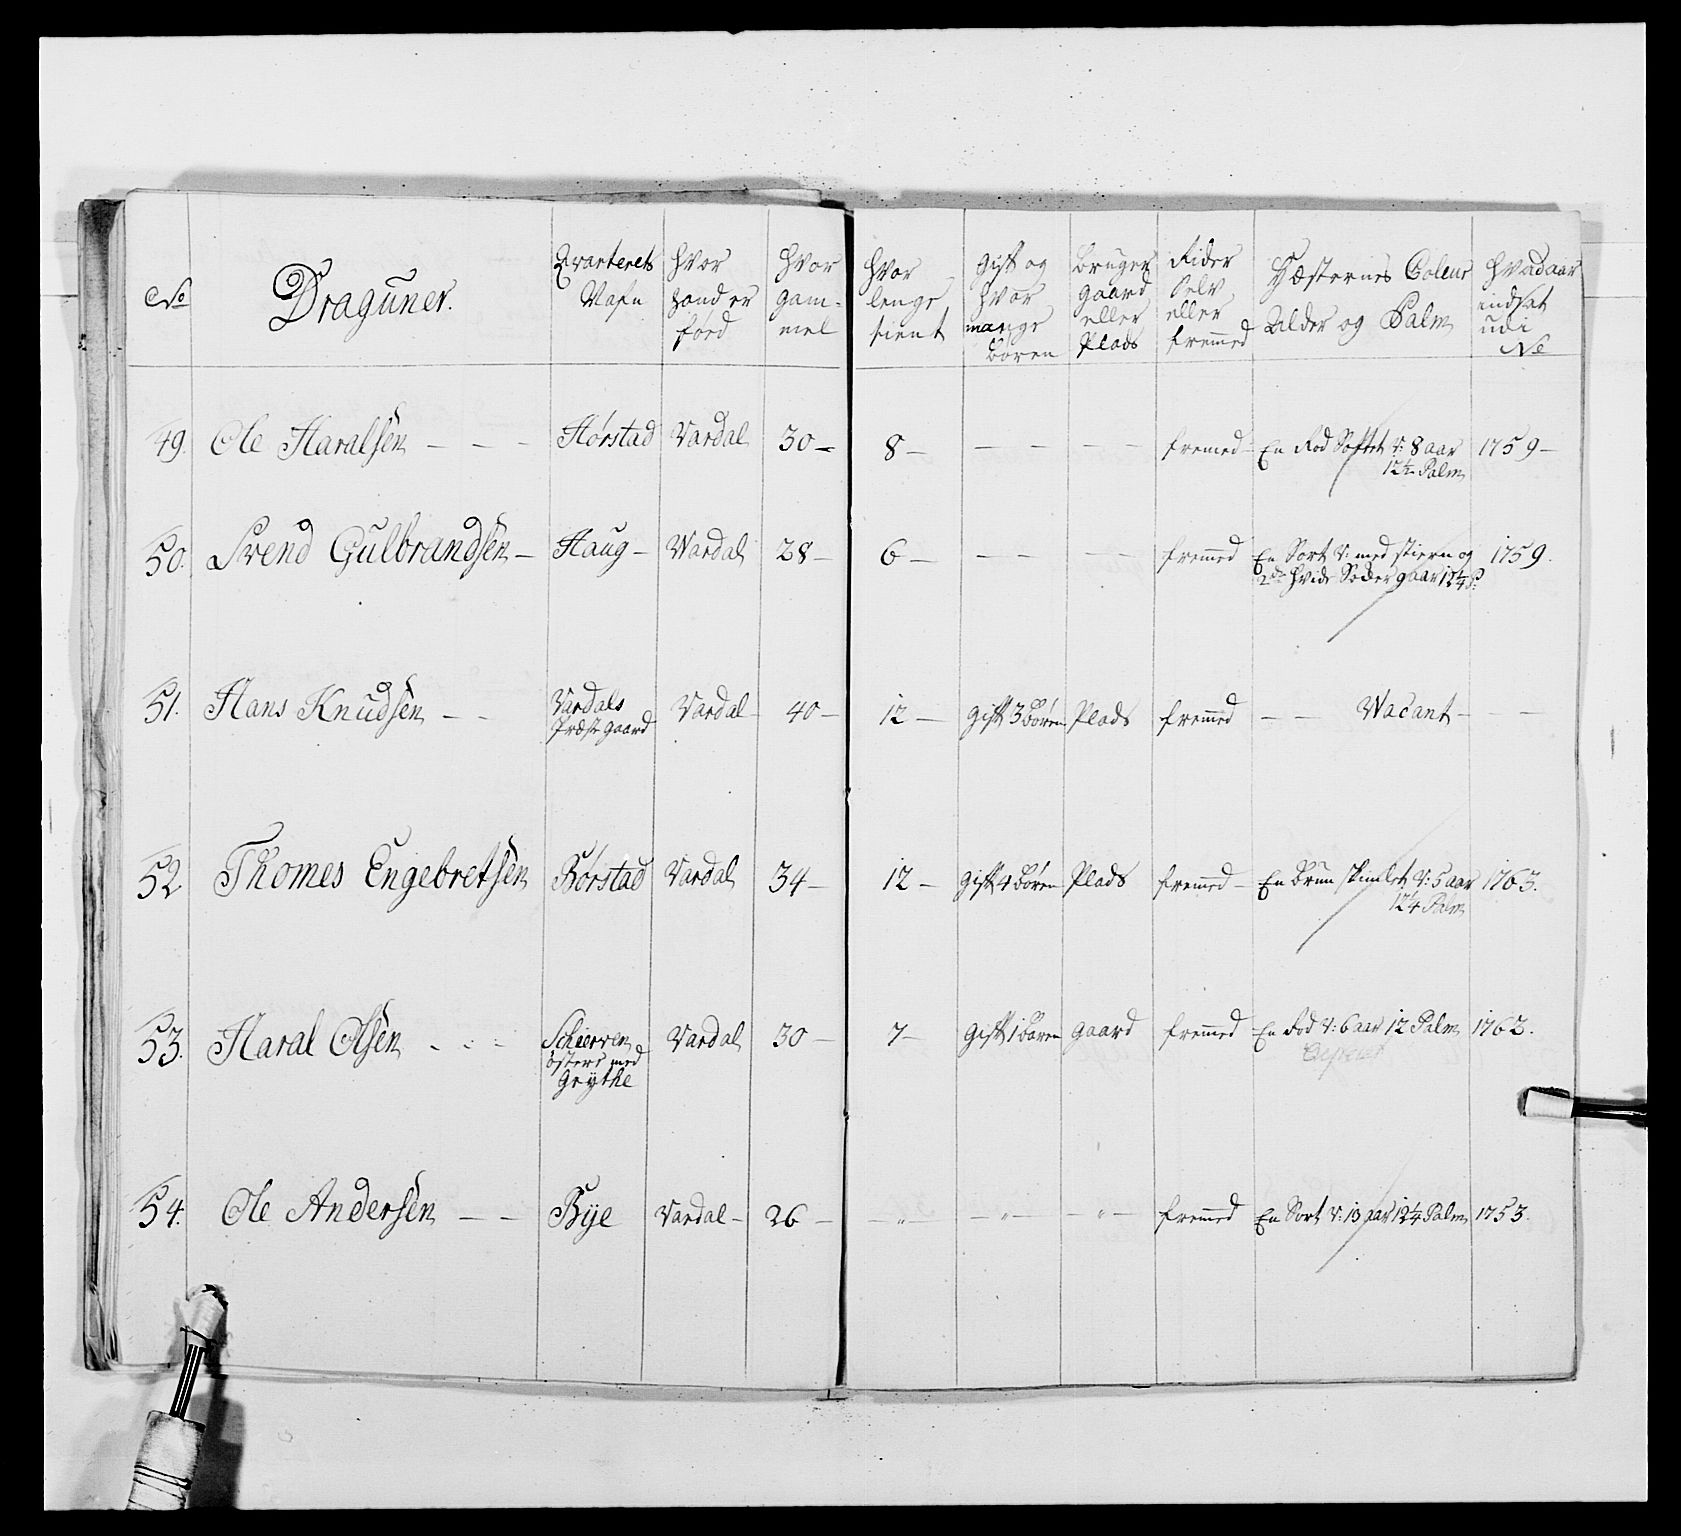 No
Draguner.
Qvarterets Nafn
Hvor hand er förd
Hvor gam-mel
Hvor lenge tient
Gift og hvor mange Bören
Bruger gaard eller Plads
Rider selv eller fremmed
Hæsternes Coleur Alder og Palm
Hvad aar indsat udi No
49. Ole Haralsen – – – Hörstad Vardal 30 – 8 – – – – – fremed – En Rod V: 8 aar 1759 –
12½ Palm
50. Svend Gulbrandsen – Haug – Wardal 28 – 6 – – – – – fremmed En Sort V: med stiern og 1759.
2de hvide 9 aar 12¼ P:
51. Hans Knudsen – – Vardals Præstgaard Vardal 40 – 12 – Gift 3 Bören Plads fremmed – – Wacant – –
52 Thomes Engebretsen Börstad Vardal 34 – 12 – Gift 4 Bören Plads fremmed – En Brun V: 5 aar 1763.
12¼ Palm
53. Haral Olsen - - - Schierven östere med Grythe Vardal 30 – 7 – Gift 1 Baren gaard fremmed En Rod V: 6 aar 12 Palm 1762.
54. Ole Andersen – – Bye Vardal – 26 – – „ – – „ – „ – fremmed En Sort V: 13 aar 12¼ Palm 1753.